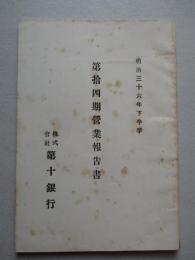 明治三十六年下半季
第拾四期營業報告書
株式會社第十銀行